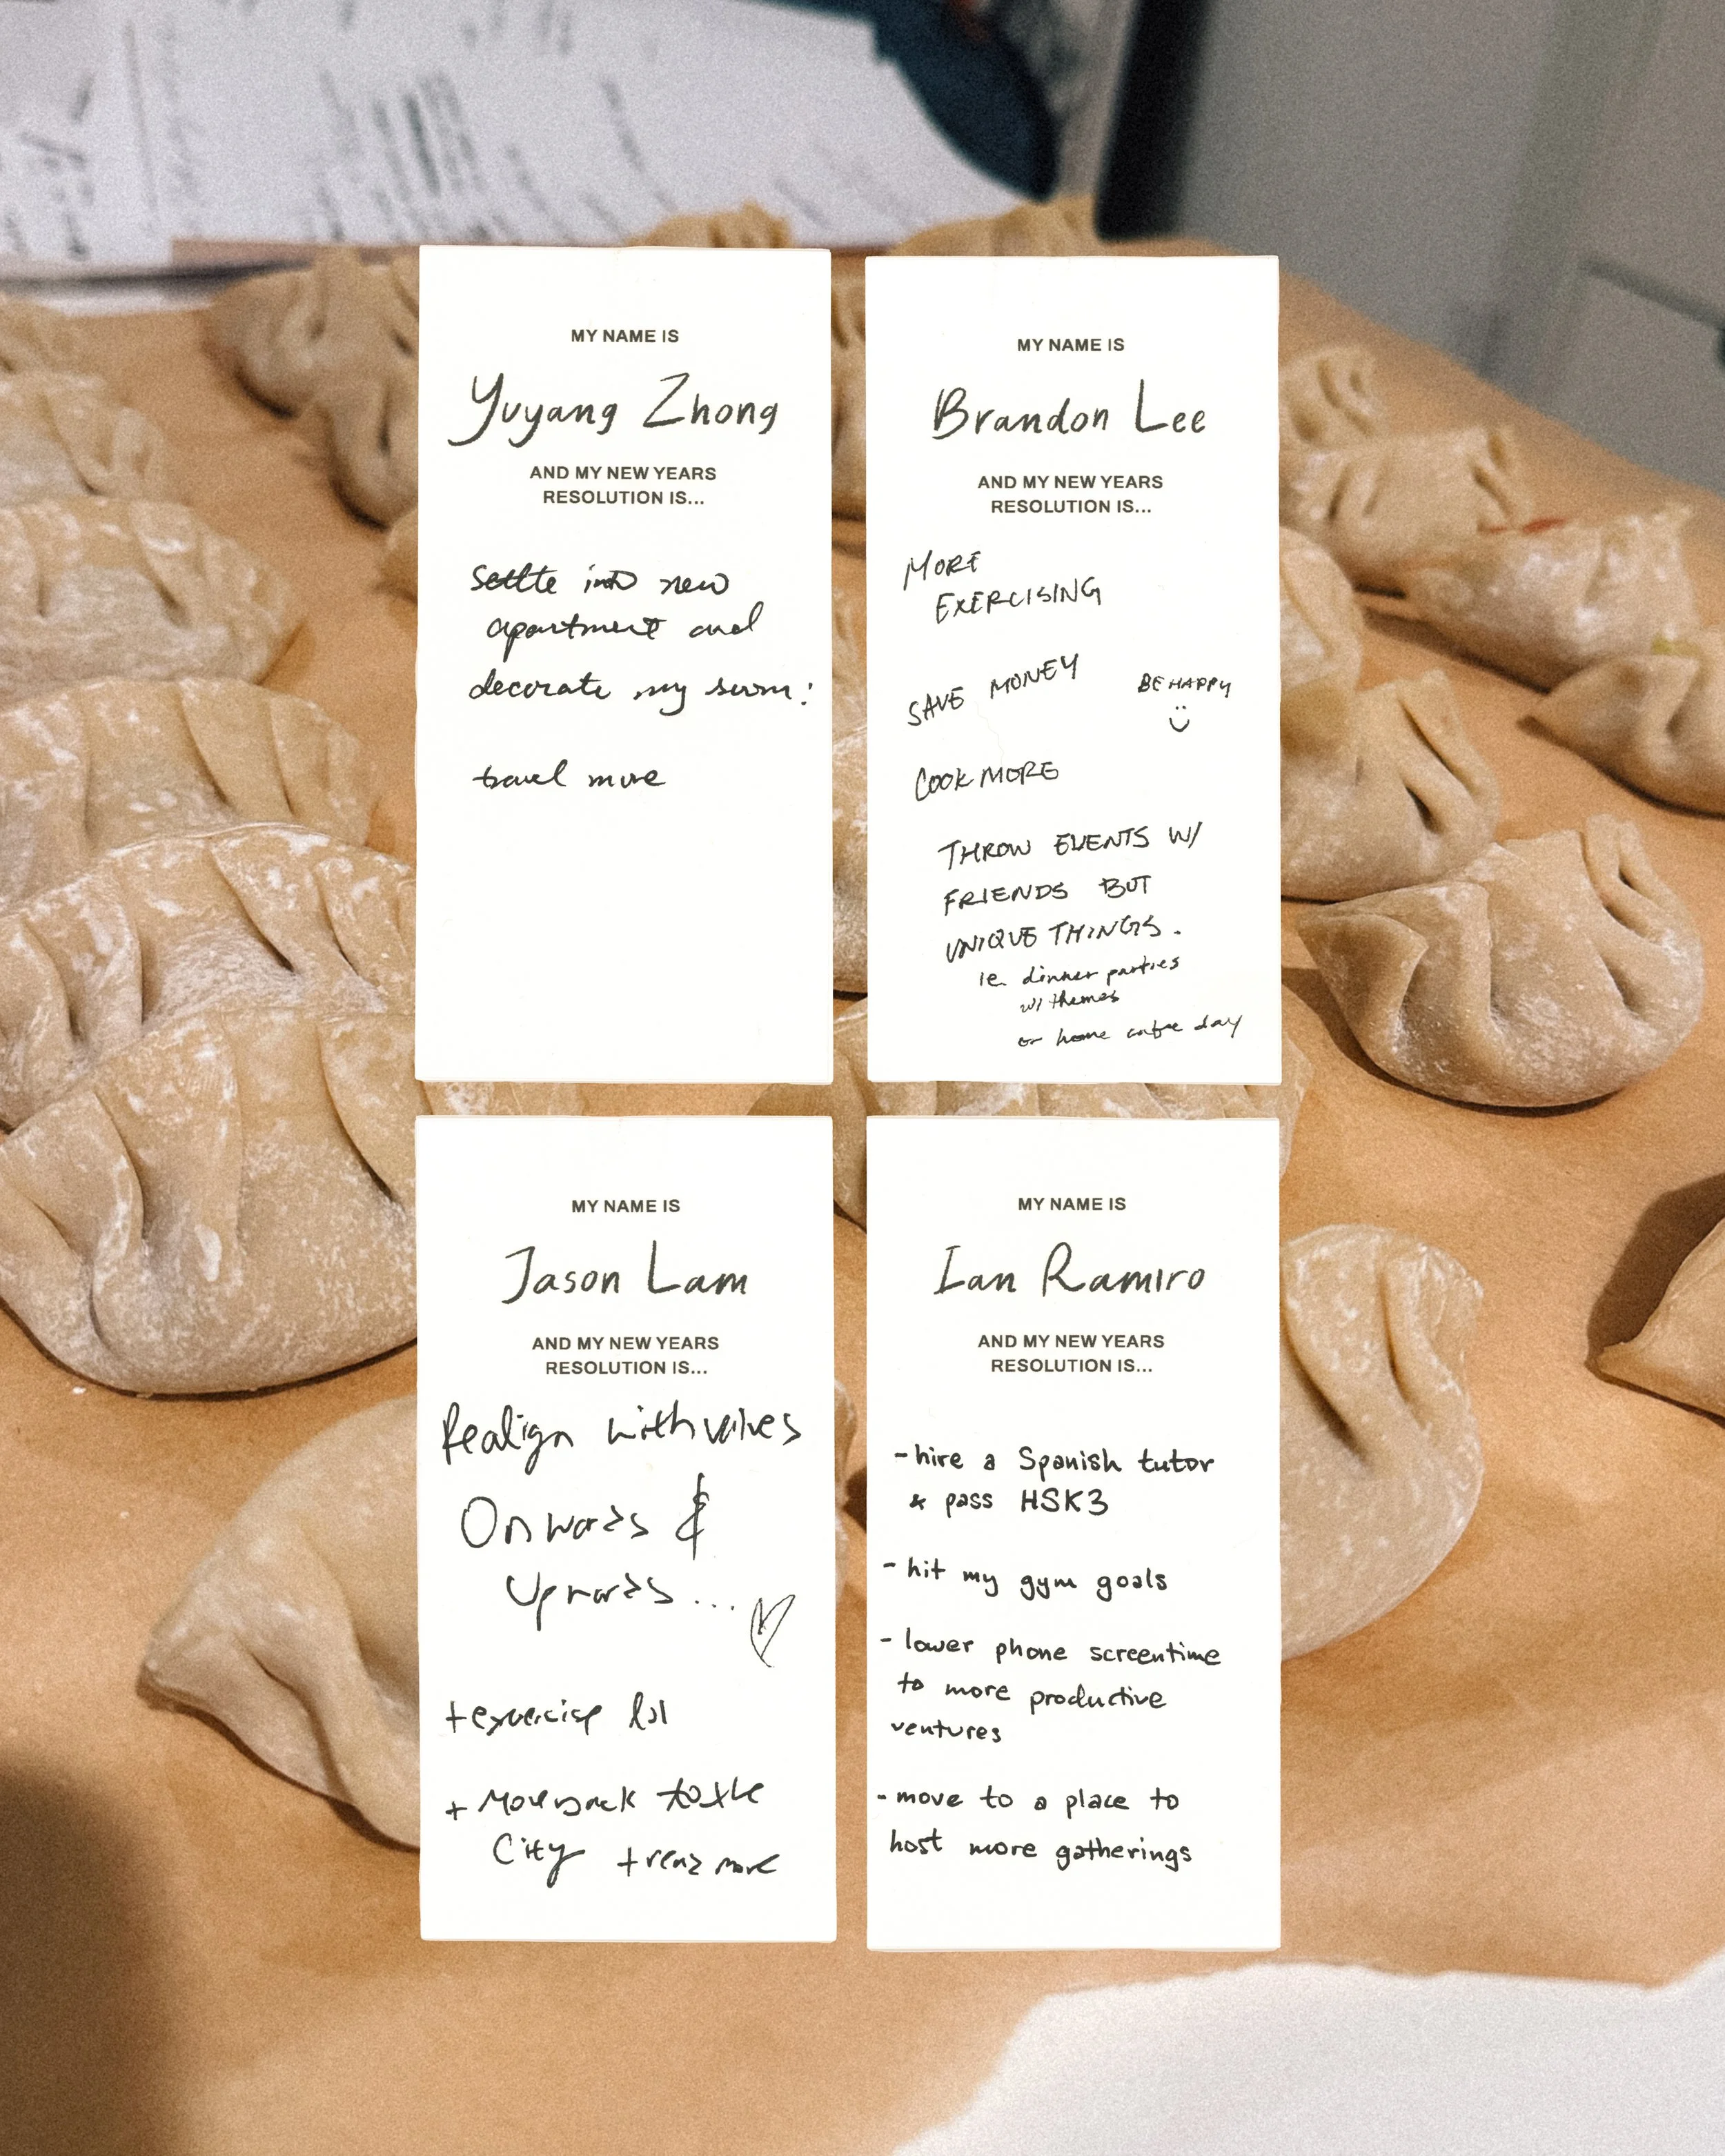 MY NAME IS
Yuyang Zhong
AND MY NEW YEARS
RESOLUTION IS...
settle into new
apartment and
decorate my room!
travel more
MY NAME IS
Brandon Lee
AND MY NEW YEARS
RESOLUTION IS...
MORE
EXERCISING
SAVE MONEY
BE HAPPY
COOK MORE
THROW EVENTS W/
FRIENDS BUT
UNIQUE THINGS.
ie. dinner parties
w/ themes
or home coffee day
MY NAME IS
Jason Lam
AND MY NEW YEARS
RESOLUTION IS...
Realign with values
Onwards &
Upwards...
+ exercise lol
+ Move back to the
City + read more
MY NAME IS
Ian Ramiro
AND MY NEW YEARS
RESOLUTION IS...
- hire a Spanish tutor
& pass HSK3
- hit my gym goals
- lower phone screentime
to more productive
ventures
- move to a place to
host more gatherings